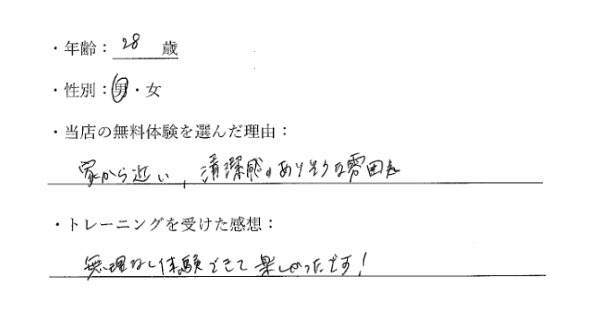 ・年齢： 28 歳
・性別：男・女
・当店の無料体験を選んだ理由：
家から近い, 清潔感のありそうな雰囲気
・トレーニングを受けた感想：
無理なし体験できて楽しかったです！